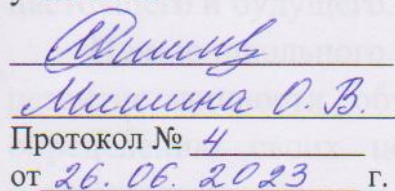 Мишина О. В.
Протокол № 4
от 26. 06. 2023 г.